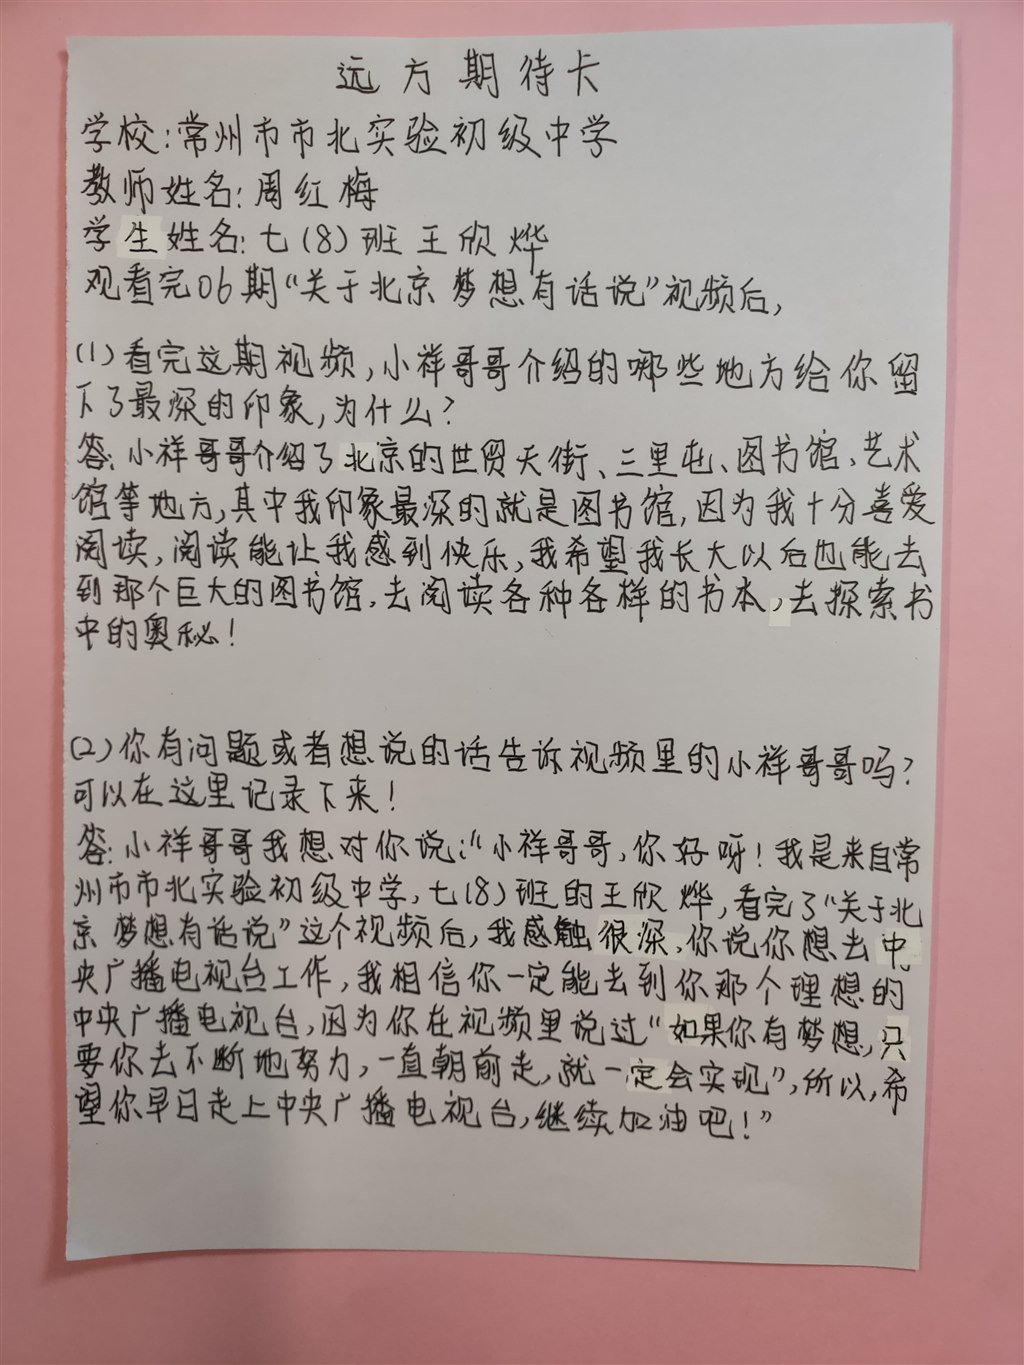 远方期待卡
学校:常州市市北实验初级中学
教师姓名:周红梅
学生姓名:七(8)班王欣烨
观看完06期“关于北京梦想有话说”视频后,
(1)看完这期视频,小祥哥哥介绍的哪些地方给你留
下了最深的印象,为什么?
答:小祥哥哥介绍了北京的世贸天街、三里屯、图书馆、艺术
馆等地方,其中我印象最深的就是图书馆,因为我十分喜爱
阅读,阅读能让我感到快乐,我希望我长大以后也能去
到那个巨大的图书馆,去阅读各种各样的书本,去探索书
中的奥秘!
(2)你有问题或者想说的话告诉视频里的小祥哥哥吗?
可以在这里记录下来!
答:小祥哥哥我想对你说:“小祥哥哥,你好呀!我是来自常
州市市北实验初级中学,七(8)班的王欣烨,看完了“关于北
京梦想有话说”这个视频后,我感触很深,你说你想去中
央广播电视台工作,我相信你一定能去到你那个理想的
中央广播电视台,因为你在视频里说过“如果你有梦想,只
要你去不断地努力,一直朝前走,就一定会实现”,所以,希
望你早日走上中央广播电视台,继续加油吧!”